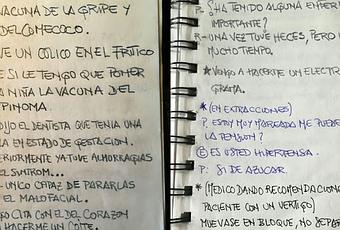 VACUNA DE LA GRIPE Y
DEL COMECOCO.
VE UN COLICO EN EL FRITICO
E SI LE TENGO QUE PONER
A NIÑA LA VACUNA DEL
PINOMA.
DIJO EL DENTISTA QUE TENIA UNA
LA EN ESTADO DE GESTACION.
ERIORMENTE YA TUVE ALMORRAGIAS
EL SINTROM...
UNICO CAPAZ DE PARARLAS
EL MALOFACIAL.
GO CITA CON EL DEL CORAZON
HACERME UN COITE.
P- ¿HA TENIDO ALGUNA ENFER
IMPORTANTE?
R- UNA VEZ TUVE HECES, PERO
MUCHO TIEMPO.
* VENGO A HACERME UN ELECTR
GRAMA.
* (EN EXTRACCIONES)
P. ESTOY MUY MAREADO ME PUEDE
LA TENSION?
E ES USTED HIPERTENSA.
P. SI DE AZUCAR.
* (MEDICO DANDO RECOMENDACION
PACIENTE CON UN VERTIGO)
MUEVASE EN BLOQUE, NO SEPAR